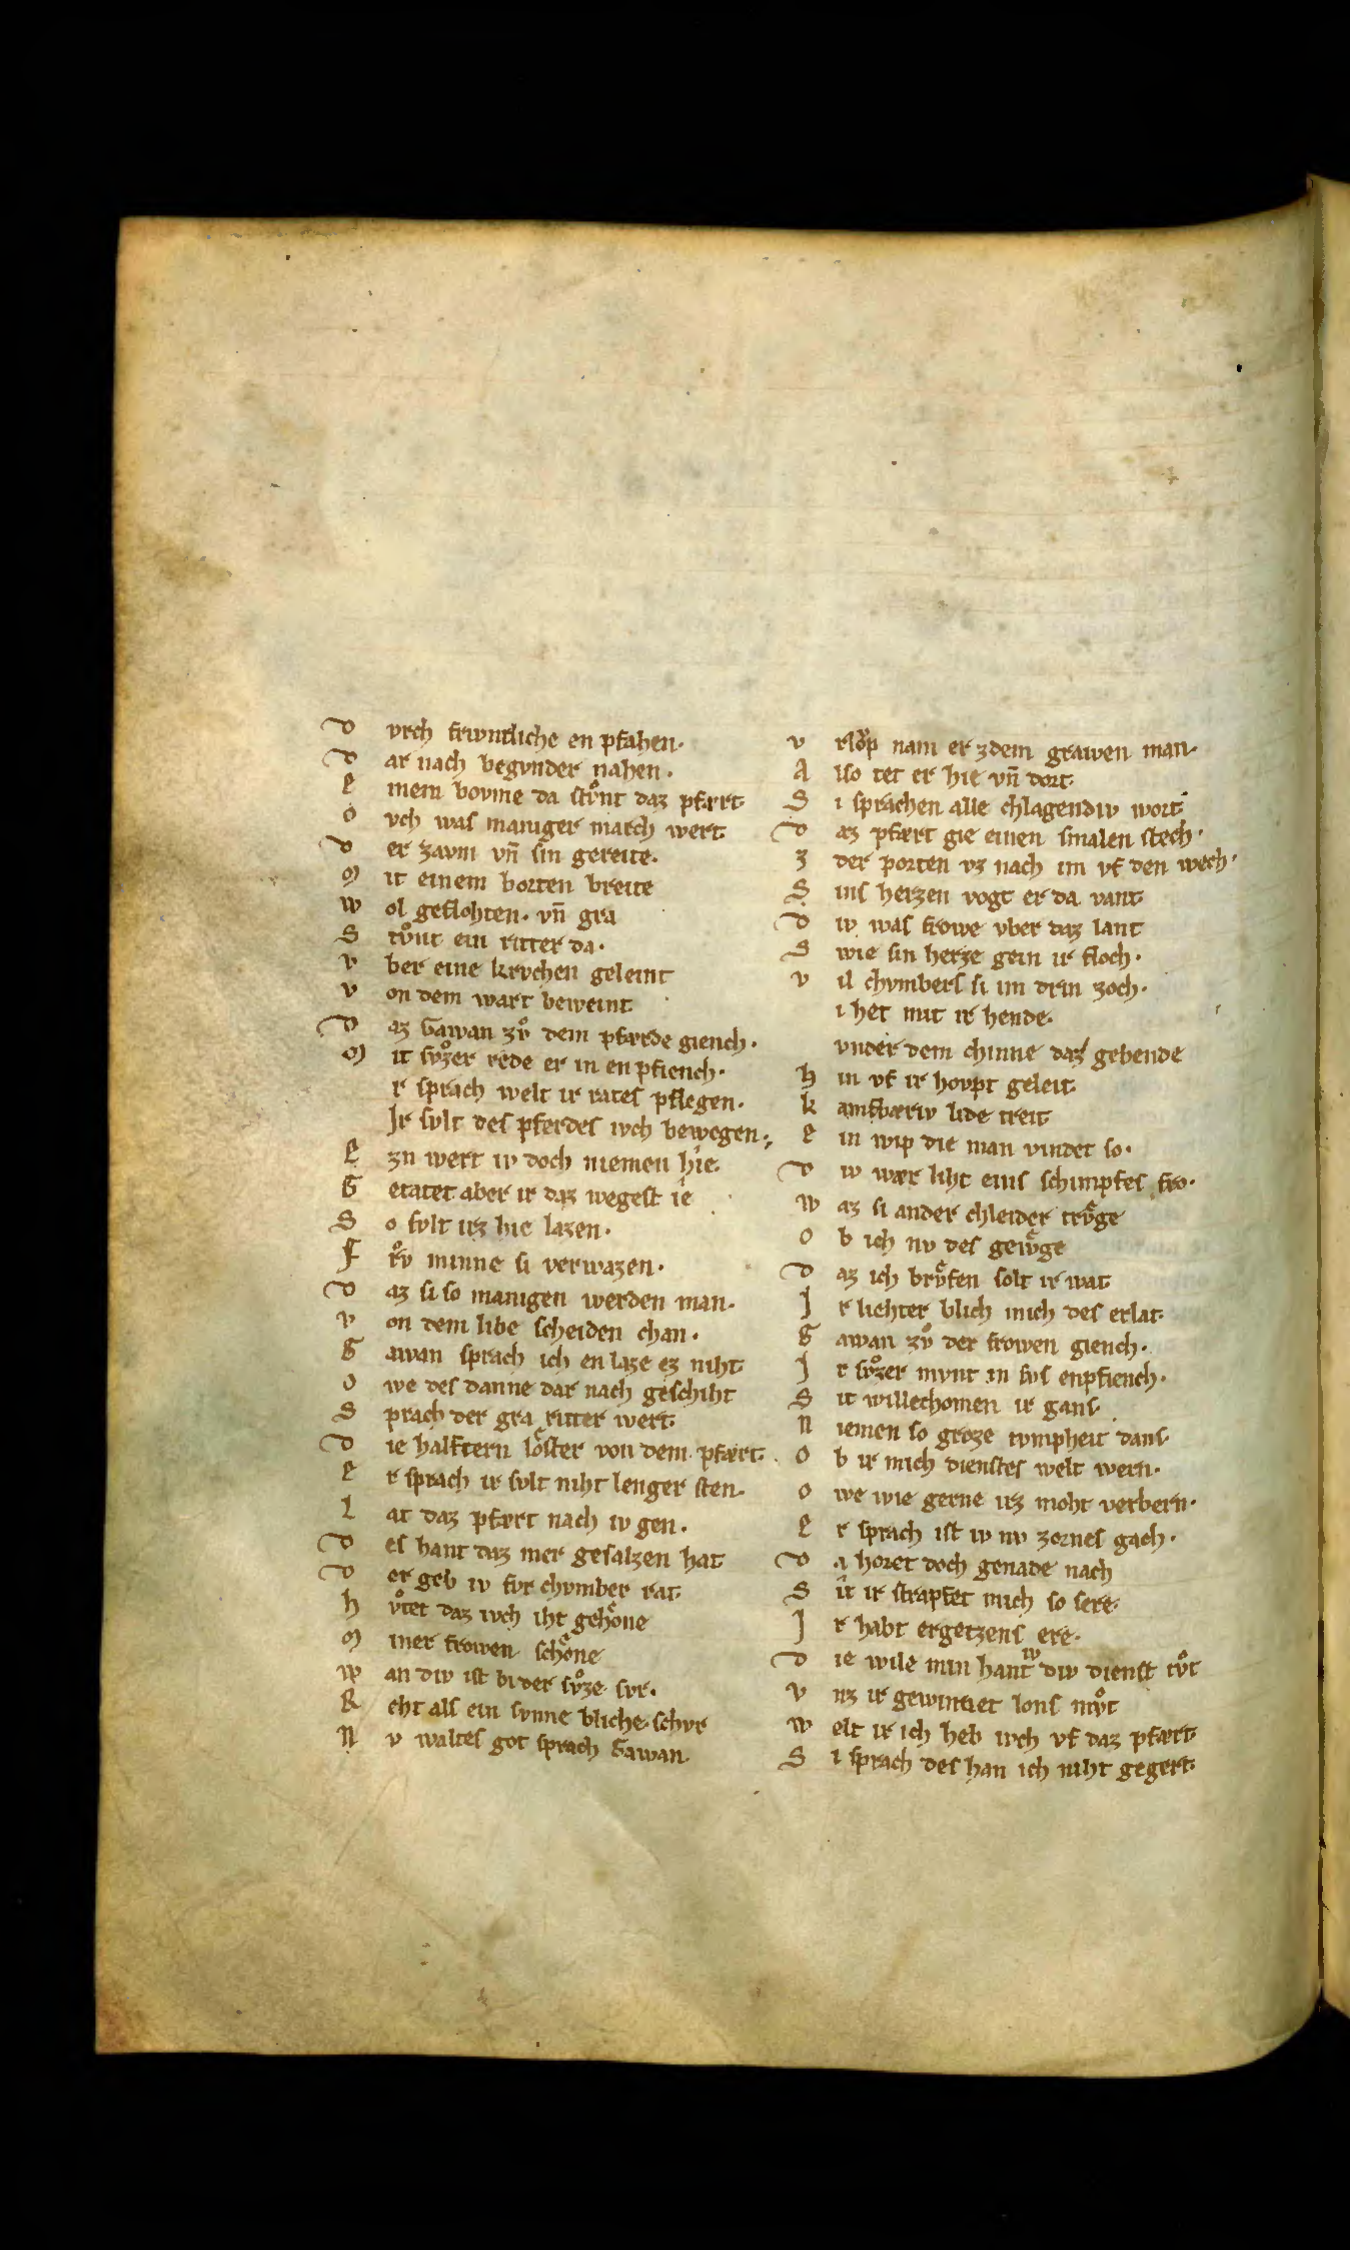 D vrch friwntliche en pfahen·
D ar nach begvnder nahen·
E inem bovme da stvͦnt daz pfært·
O vch was maniger march wert·
D er zavm vn̄ sin gereite·
M it einem borten breite
W ol geflohten· vn̄ gra
S tvͦnt ein ritter da·
V ber eine krvchen geleint
V on dem wart beweint·
D az Gawan zvͦ dem pfærde giench·
M it svͦzer rede er in en pfiench·
r sprach welt ir rates pflegen·
Ir svlt des pferdes iwch bewegen·
E zn wert iv doch niemen hie·
G etatet aber ir daz wegest ie
S o svlt irz hie lazen·
F rͦv minne si verwazen·
D az si so manigen werden man·
V on dem libe scheiden chan·
G awan sprach ich en laze ez niht·
O we des danne dar nach geschiht
S prach der gra ritter wert·
D ie halftern loͤster von dem pfært·
E r sprach ir svlt niht lenger sten·
L at daz pfært nach iv gen·
D es hant daz mer gesalzen hat
D er geb iv fvr chvmber rat·
H vͦtet daz iwch iht gehoͤne
M iner frowen schoͤne
W an div ist bi der svͦze svr·
R eht als ein svnne bliche schvr
N v waltes got sprach Gawan·
V rloͮp nam er zdem grawen man·
A lso tet er hie vn̄ dort·
S i sprachen alle chlagendiv wort
D az pfært gie einen smalen stech·
Z der porten vz nach im vf den wech·
S ins herzen vogt er da vant·
D iv was frowe vber daz lant
S wie sin herze gein ir floch·
V il chvmbers si im drin zoch·
i het mit ir hende·
vnder dem chinne daz gebende
H in vf ir hovpt geleit·
K amfbæriv lide treit
E in wip die man vindet so·
D iv wær liht eins schimpfes fro·
W az si ander chleider trvͤge
O b ich nv des gewͤge
D az ich brvͤfen solt ir wat
I r liehter blich mich des erlat·
G awan zvͦ der frowen giench·
I r svͦzer mvnt in svs enpfiench·
S it willechomen ir gans·
N iemen so groze tvmpheit dans·
O b ir mich dienstes welt wern·
O we wie gerne irz moht verbern·
E r sprach ist iv nv zornes gach·
D a horet doch genade nach
S it ir strapfet mich so sere·
I r habt ergetzens ere·
D ie wile min hant iv div dienst tvͦt
V nz ir gewinnet lons mvͦt
W elt ir ich heb iwch vf daz pfært·
S i sprach des han ich niht gegert·